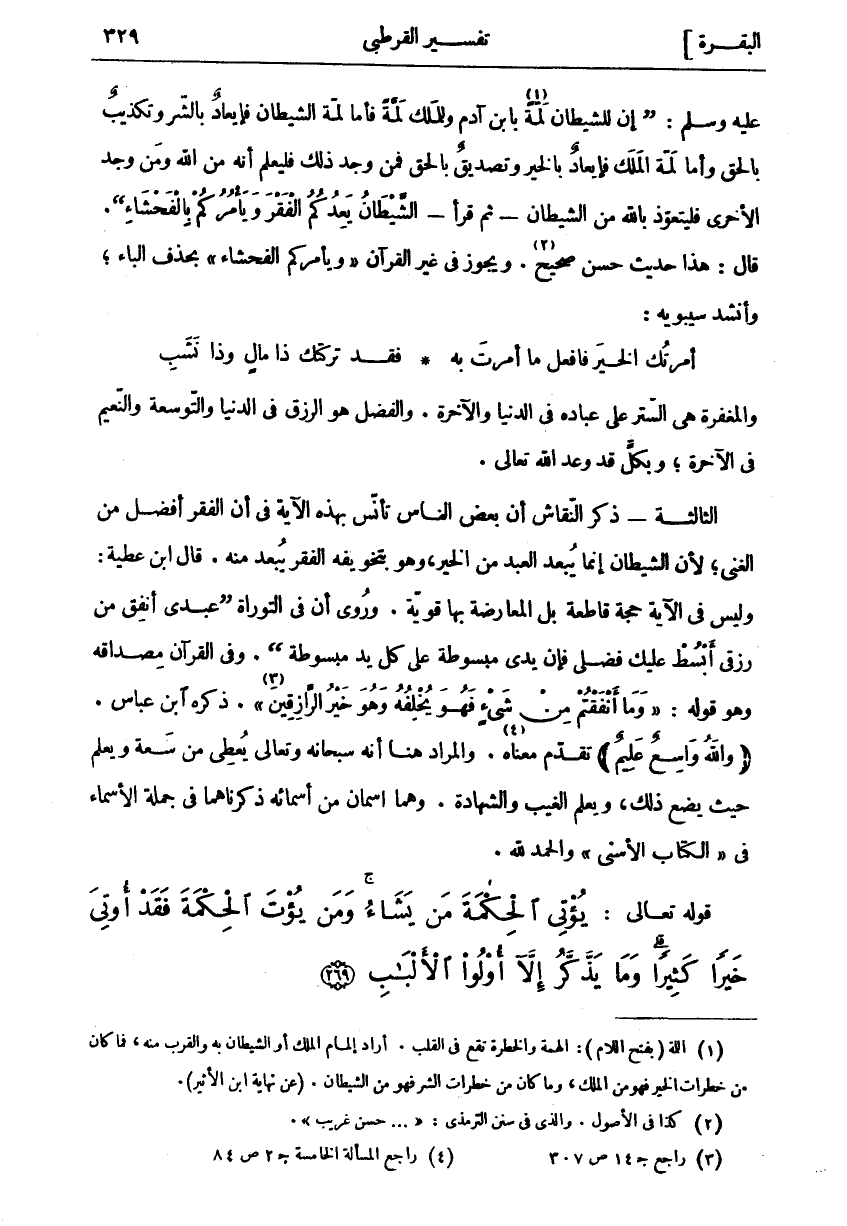 البقــرة ]
تفســير القرطبي
٣٢٩
عليه وسلم : " إن للشيطان لَمَّةً (١) بابن آدم وللمَلك لَمَّةً فأما لمة الشيطان فإيعادٌ بالشر وتكذيبٌ
بالحق وأما لَمّة المَلَك فإيعادٌ بالخير وتصديقٌ بالحق فمن وجد ذلك فليعلم أنه من الله ومَن وجد
الأخرى فليتعوّذ بالله من الشيطان — ثم قرأ — الشَّيْطَانُ يَعِدُكُمُ الْفَقْرَ وَيَأْمُرُكُمْ بِالْفَحْشَاءِ".
قال : هذا حديث حسن صحيح (٢) . ويجوز فى غير القرآن « ويأمركم الفحشاء » بحذف الباء ؛
وأنشد سيبويه :
أمرتُك الخيرَ فافعل ما أمرتَ به * فقــد تركتك ذا مالٍ وذا نَشَبِ
والمغفرة هى السّتر على عباده فى الدنيا والآخرة . والفضل هو الرزق فى الدنيا والتّوسعة والنّعيم
فى الآخرة ؛ وبكلٍّ قد وعد الله تعالى .
الثالثــة — ذكر النّقاش أن بعض النـاس تأنّس بهذه الآية فى أن الفقر أفضــل من
الغنى؛ لأن الشيطان إنما يُبعد العبد من الخير، وهو بتخويفه الفقر يُبعد منه . قال ابن عطية :
وليس فى الآية حجة قاطعة بل المعارضة بها قويّة . ورُوى أن فى التوراة "عبـدى أنفِق من
رزقى أَبْسُطْ عليك فضلى فإن يدى مبسوطة على كل يد مبسوطة " . وفى القرآن مِصـداقه
وهو قوله : « وَمَا أَنْفَقْتُمْ مِنْ شَيْءٍ فَهُــوَ يُخْلِفُهُ وَهُوَ خَيْرُ الرَّازِقِينَ » (٣) . ذكره آبن عباس .
﴿ وَاللهُ وَاسِــعٌ عَلِيمٌ ﴾ تقــدّم معناه (٤) . والمراد هنـا أنه سبحانه وتعالى يُعطِى من سَــعة ويعلم
حيث يضع ذلك، ويعلم الغيب والشهادة . وهما اسمان من أسمائه ذكرناهما فى جملة الأسماء
فى « الكتاب الأسنى » والحمد لله .
قوله تعــالى : يُؤْتِى ٱلْحِكْمَةَ مَن يَشَآءُ ۚ وَمَن يُؤْتَ ٱلْحِكْمَةَ فَقَدْ أُوتِىَ
خَيْرًا كَثِيرًا ۗ وَمَا يَذَّكَّرُ إِلَّآ أُوْلُواْ ٱلْأَلْبَـٰبِ ٢٦٩
(١) اللة (بفتح اللام) : الهمة والخطرة تقع فى القلب . أراد إلمـام الملك أو الشيطان به والقرب منه ، فما كان
من خطرات الخير فهو من الملك ، وما كان من خطرات الشر فهو من الشيطان . (عن نهاية ابن الأثير).
(٢) كذا فى الأصول . والذى فى سنن الترمذى : « ... حسن غريب » .
(٣) راجع جـ ١٤ ص ٣٠٧ (٤) راجع المسألة الخامسة جـ ٢ ص ٨٤